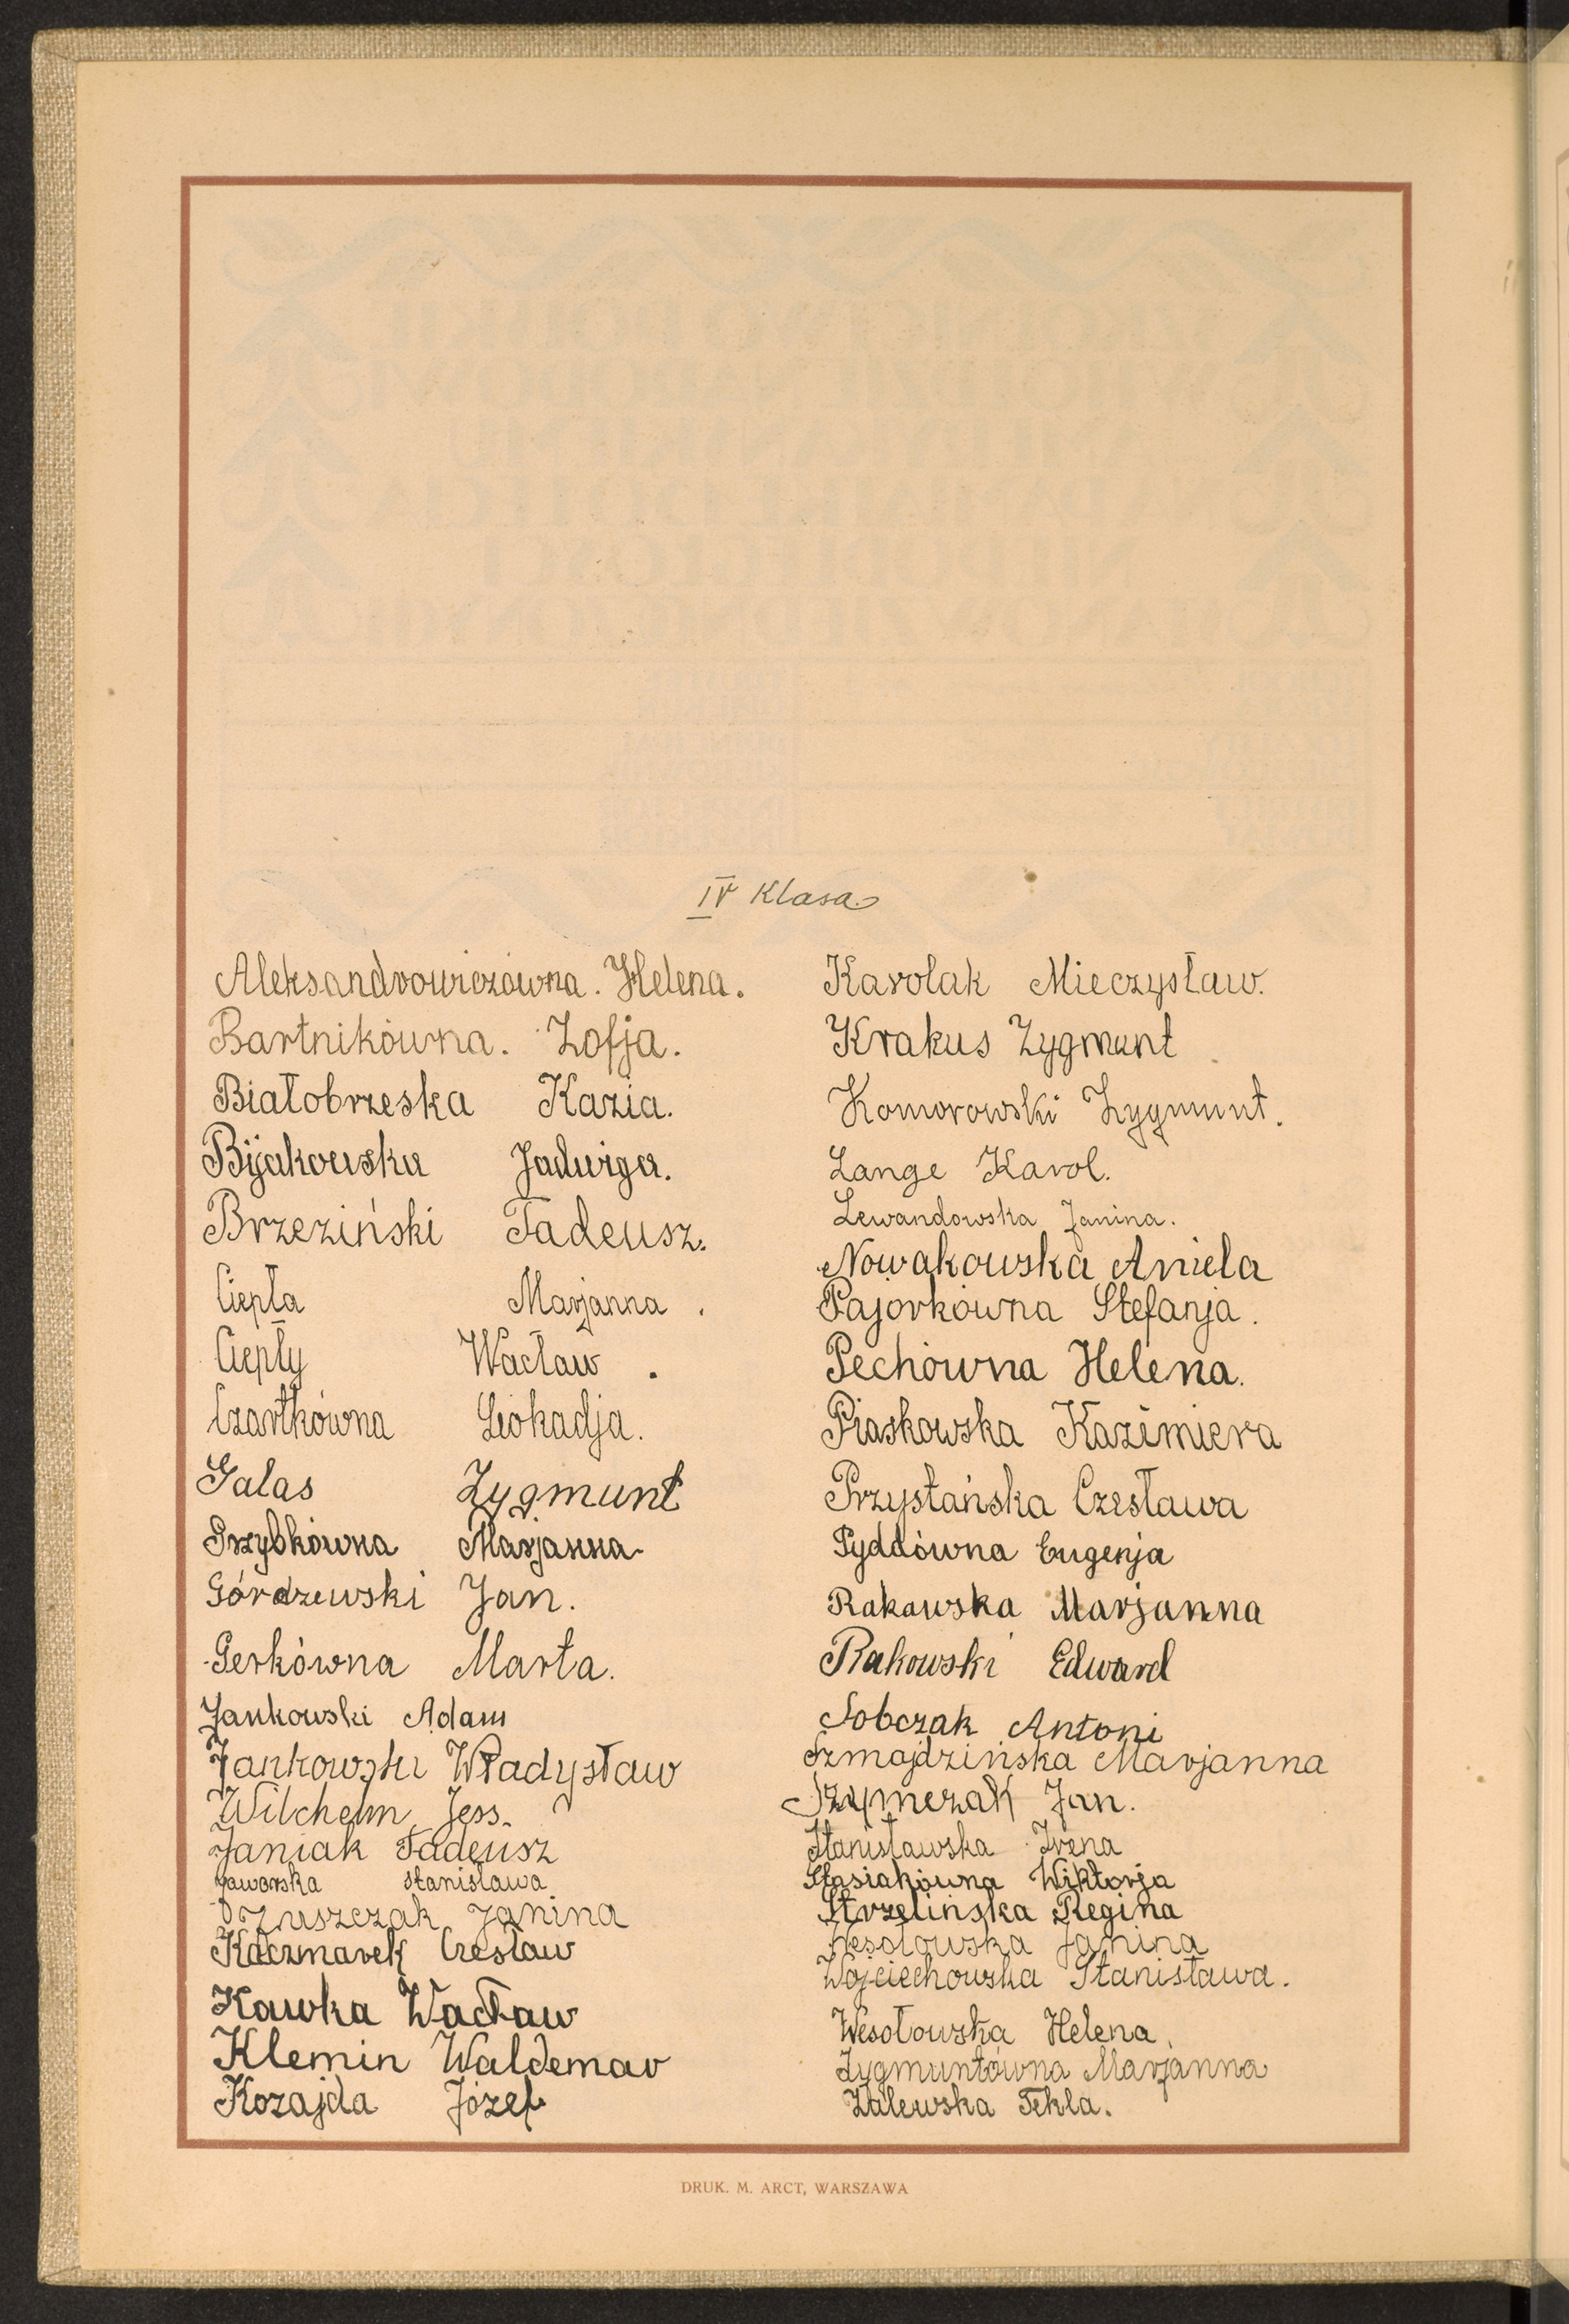 IV Klasa
Aleksandrowiczówna. Helena.
Bartnikówna. Zofja.
Białobrzeska Kazia.
Bijakowska Jadwiga.
Brzeziński Tadeusz.
Ciepła Marjanna.
Ciepły Wacław.
Czartkówna Leokadja.
Galas Zygmunt
Grzybkówna Marjanna
Górdzewski Jan.
Gerkówna Marta.
Jankowski Adam
Jankowski Władysław
Wilchelm Jess.
Janiak Tadeusz
Jaworska Stanisława
Juszczak Janina
Kaczmarek Czesław
Kawka Wacław
Klemin Waldemar
Kozajda Józef
Karolak Mieczysław.
Krakus Zygmunt
Komorowski Zygmunt.
Lange Karol.
Lewandowska Janina.
Nowakowska Aniela
Pajorkówna Stefanja.
Pechówna Helena.
Piaskowska Kazimiera
Przystańska Czesława
Pyddówna Eugenja
Rakawska Marjanna
Rakowski Edward
Sobczak Antoni
Szmajdzińska Marjanna
Szymczak Jan.
Stanisławska Irena
Stasiakówna Wiktorja
Strzelińska Regina
Wesołowska Janina
Wojciechowska Stanisława.
Wesołowska Helena.
Zygmuntówna Marjanna
Zalewska Tekla.
DRUK. M. ARCT, WARSZAWA